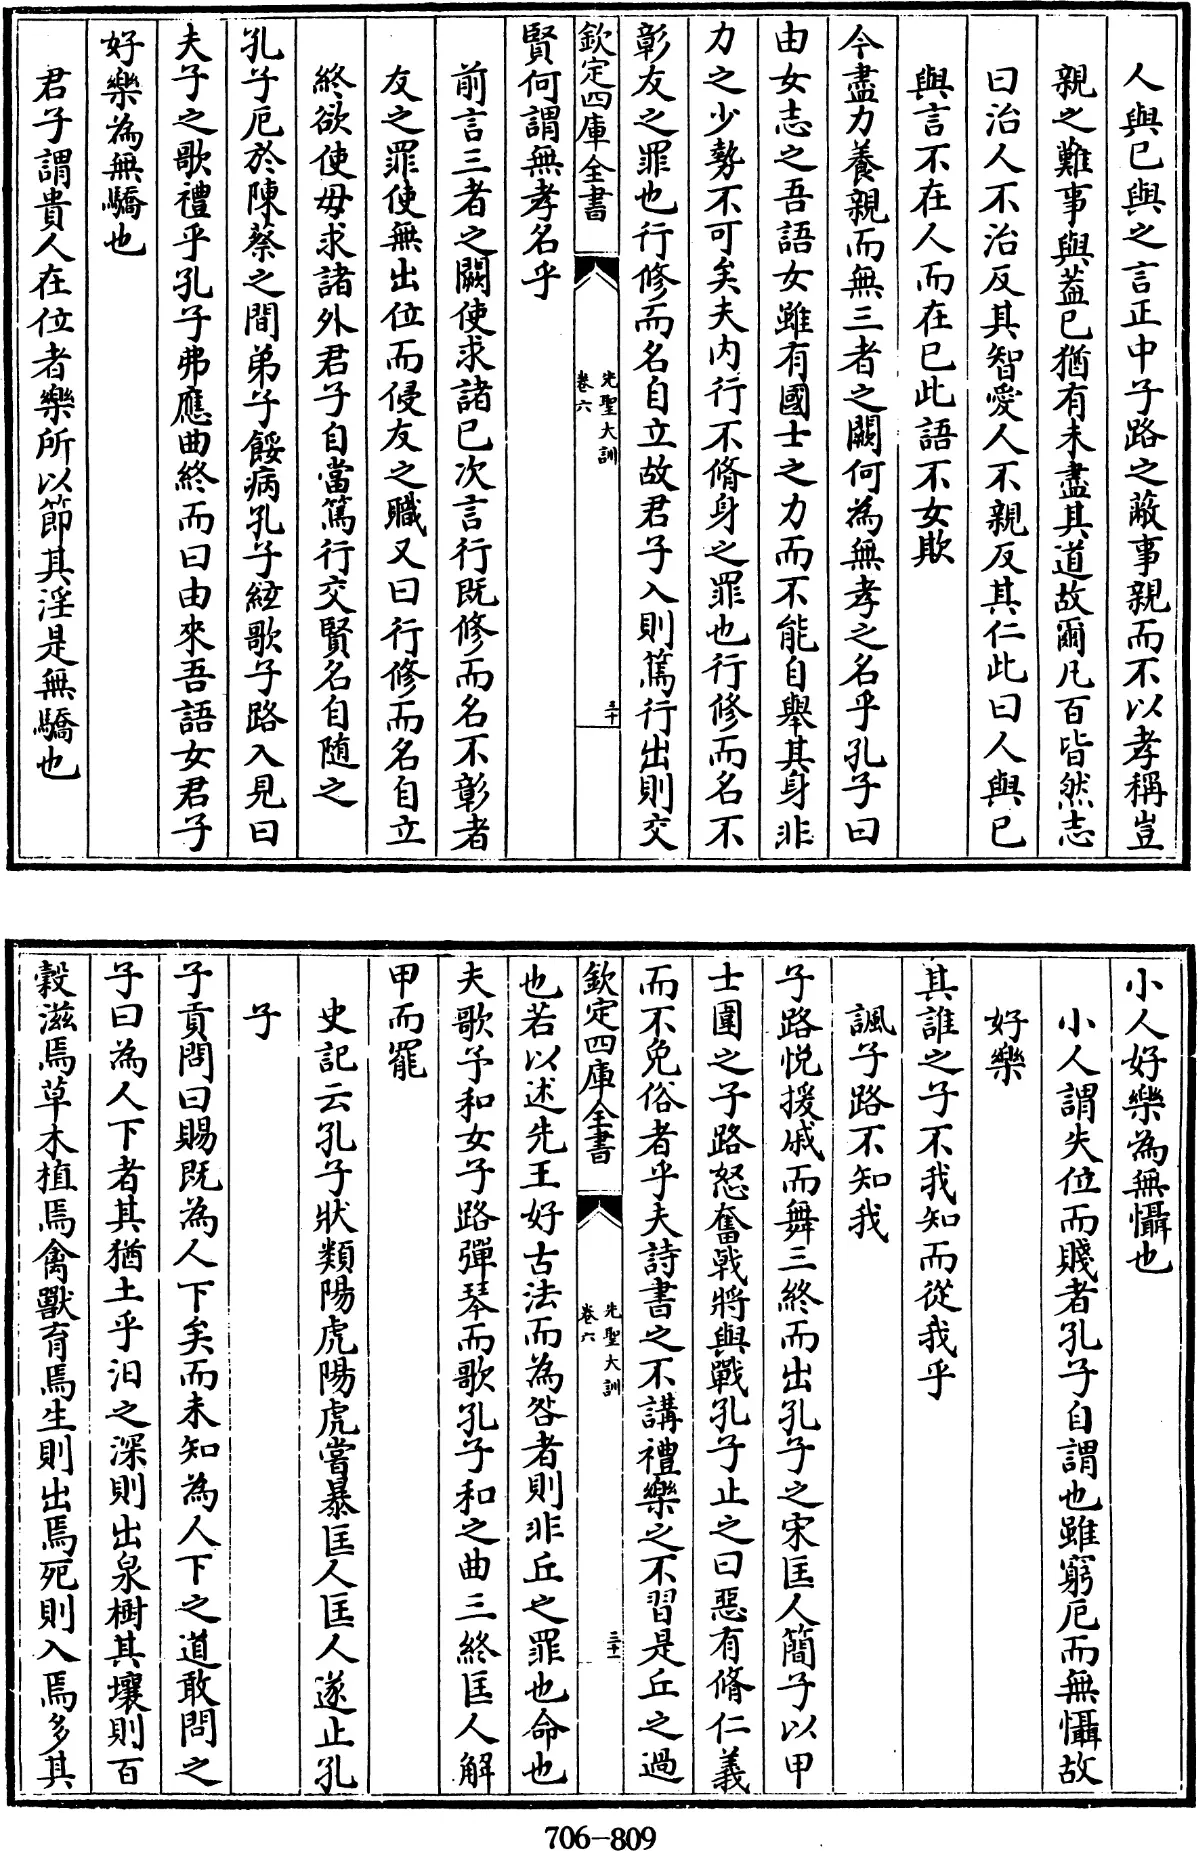 人與已與之言正中子路之蔽事親而不以孝稱豈
親之難事與葢已猶有未盡其道故爾凡百皆然志
曰治人不治反其智愛人不親反其仁此曰人與已
與言不在人而在已此語不女欺
今盡力養親而無三者之闕何為無孝之名乎孔子曰
由女志之吾語女雖有國士之力而不能自舉其身非
力之少勢不可矣夫内行不脩身之罪也行修而名不
彰友之罪也行修而名自立故君子入則篤行出則交
欽定四庫全書
先聖大訓
卷六
三十
賢何謂無孝名乎
前言三者之闕使求諸已次言行既修而名不彰者
友之罪使無出位而侵友之職又曰行修而名自立
終欲使毋求諸外君子自當篤行交賢名自随之
孔子厄於陳蔡之間弟子餒病孔子絃歌子路入見曰
夫子之歌禮乎孔子弗應曲終而曰由來吾語女君子
好樂為無驕也
君子謂貴人在位者樂所以節其淫是無驕也
小人好樂為無懾也
小人謂失位而賤者孔子自謂也雖窮厄而無懾故
好樂
其誰之子不我知而從我乎
諷子路不知我
子路悦援戚而舞三終而出孔子之宋匡人簡子以甲
士圍之子路怒奮戟將與戰孔子止之曰惡有脩仁義
而不免俗者乎夫詩書之不講禮樂之不習是丘之過
欽定四庫全書
先聖大訓
卷六
三十一
也若以述先王好古法而為咎者則非丘之罪也命也
夫歌予和女子路彈琴而歌孔子和之曲三終匡人解
甲而罷
史記云孔子狀類陽虎陽虎嘗暴匡人匡人遂止孔
子
子貢問曰賜既為人下矣而未知為人下之道敢問之
子曰為人下者其猶土乎汨之深則出泉樹其壤則百
榖滋焉草木植焉禽獸育焉生則出焉死則入焉多其
706-809